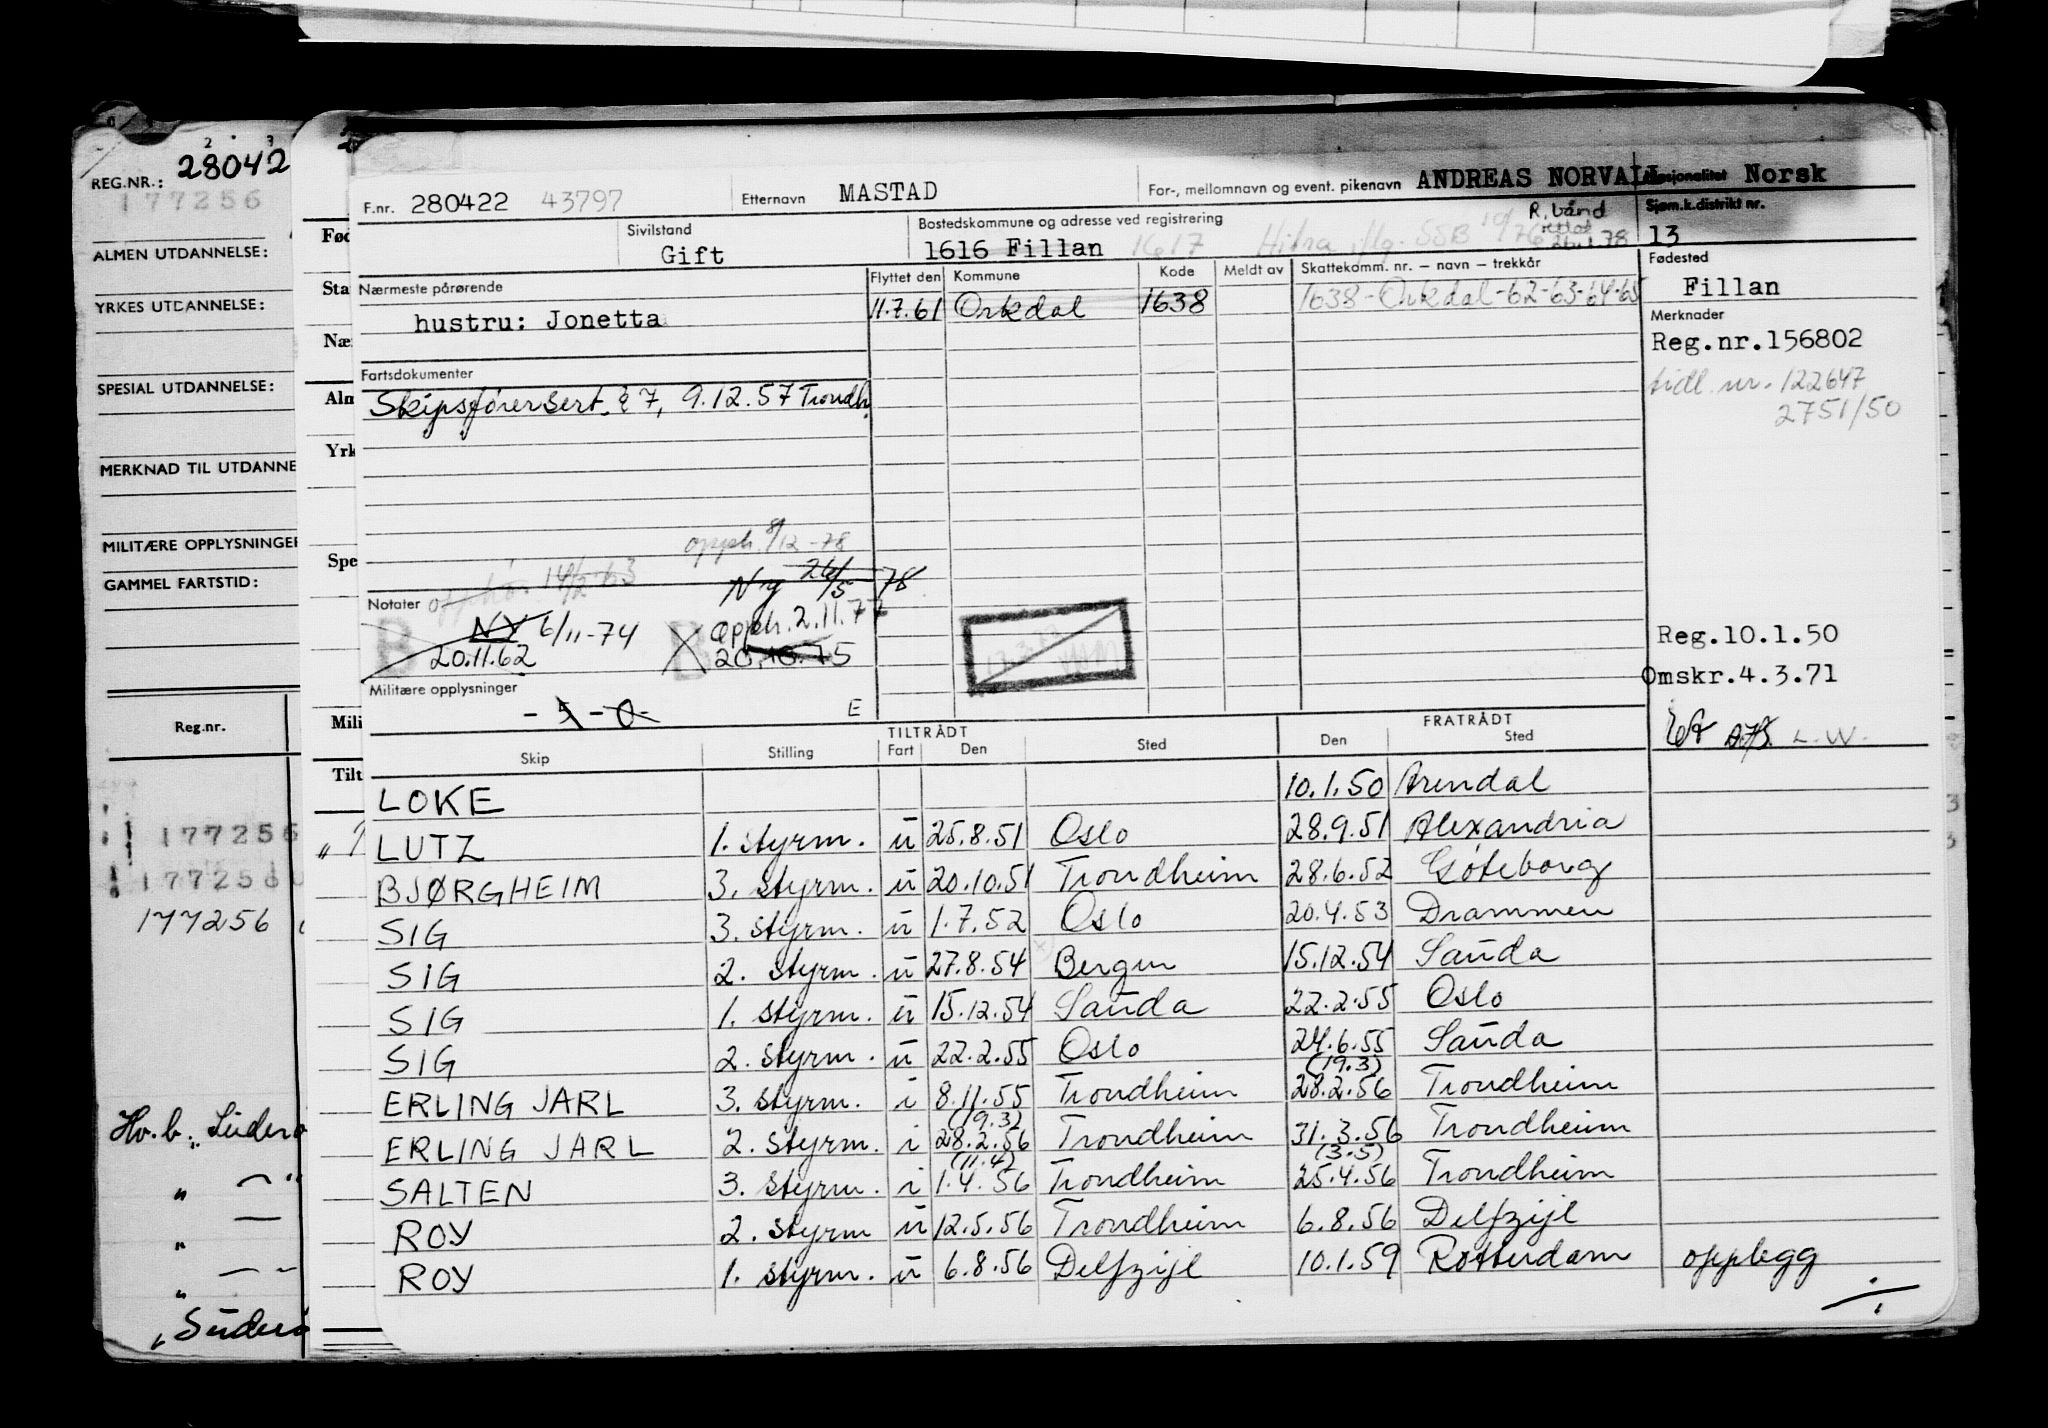 REG.NR.: 28042
177256
ALMEN UTDANNELSE:
YRKES UTDANNELSE:
SPESIAL UTDANNELSE:
MERKNAD TIL UTDANNE
MILITÆRE OPPLYSNINGER
GAMMEL FARTSTID:
Reg.nr.
177256
177256
177256
Hv.b.
Fød
Sta
Næ
Alm
Yrk
Spe
Mili
Tilt
F.nr. 280422 43797 Etternavn MASTAD For-, mellomnavn og event. pikenavn ANDREAS NORVALL Nasjonalitet Norsk
Sivilstand Gift
Bostedskommune og adresse ved registrering
1616 Fillan 1617 Hitra iflg. SSB 10/76 R. bånd
Sjøm.k.distrikt nr. 13
Nærmeste pårørende Flyttet den Kommune Kode Meldt av Skattekomm. nr. – navn – trekkår Fødested
hustru: Jonetta 11.7.61 Orkdal 1638 1638-Orkdal-62-63-64-65 Fillan
Merknader
Reg.nr.156802
tidl. nr. 122647
2751/50
Fartsdokumenter
Skipsførersert. § 7, 9.12.57 Trondh.
opph. 8/12-78
14/2-63 Ny 26/5 78
Notater
B NY 6/11-74 B opph. 2.11.77
20.11.62 20.10.75
Militære opplysninger
E
Reg.10.1.50
Omskr.4.3.71
L.W.
TILTRÅDT FRATRÅDT
Skip Stilling Fart Den Sted Den Sted
LOKE 10.1.50 Arendal
LUTZ 1. styrm. u 25.8.51 Oslo 28.9.51 Alexandria
BJØRGHEIM 3. styrm. u 20.10.51 Trondheim 28.6.52 Göteborg
SIG 3. styrm. u 1.7.52 Oslo 20.4.53 Drammen
SIG 2. styrm. u 27.8.54 Bergen 15.12.54 Sauda
SIG 1. styrm. u 15.12.54 Sauda 22.2.55 Oslo
SIG 2. styrm. u 22.2.55 Oslo 24.6.55 Sauda
(19.3)
ERLING JARL 3. styrm. i 8.11.55 Trondheim 28.2.56 Trondheim
(19.3)
ERLING JARL 2. styrm. i 28.2.56 Trondheim 31.3.56 Trondheim
(11.4) (3.5)
SALTEN 3. styrm. i 1.4.56 Trondheim 25.4.56 Trondheim
ROY 2. styrm u 12.5.56 Trondheim 6.8.56 Delfzijl
ROY 1. styrm. u 6.8.56 Delfzijl 10.1.59 Rotterdam opplegg